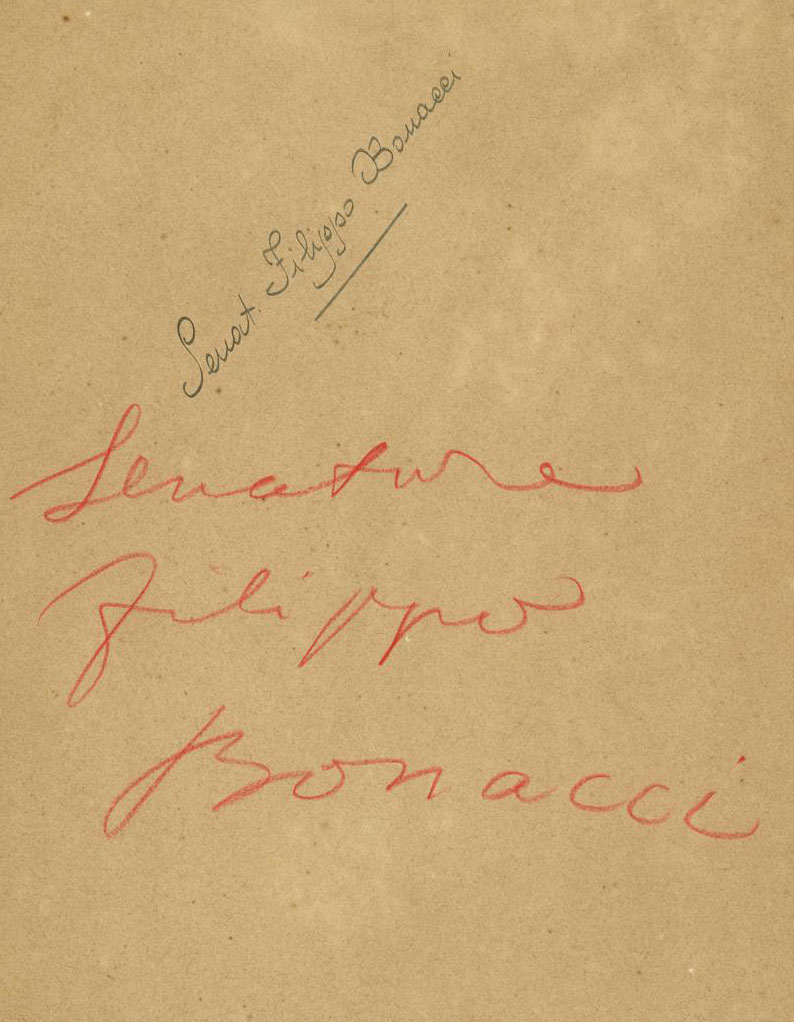 Senat. Filippo Bonacci
Senatore
Filippo
Bonacci